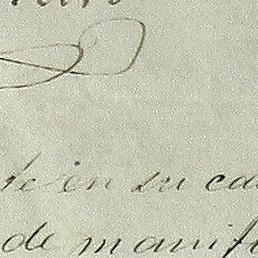 te en su cas
de manif